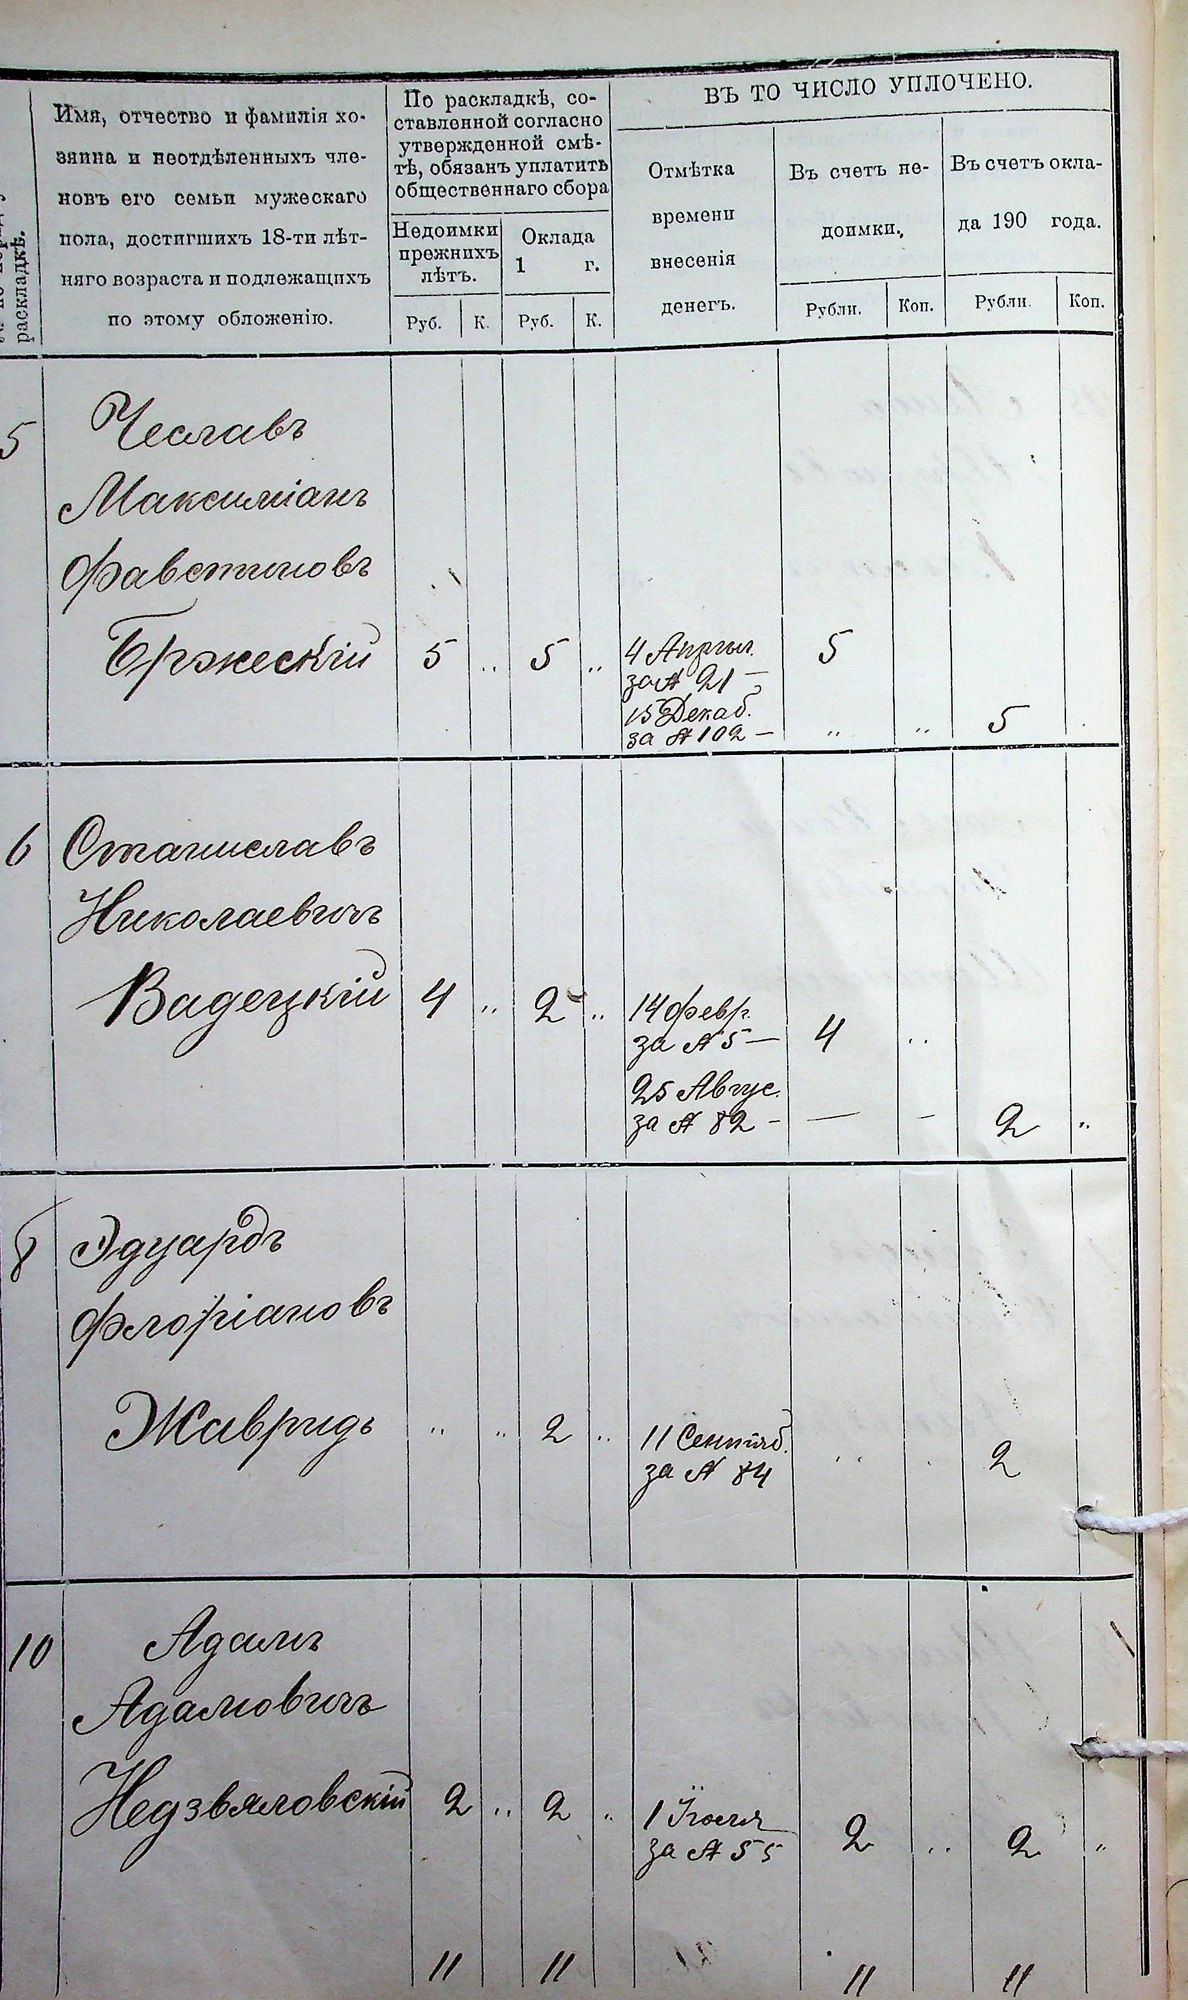 раскладкѣ.
Имя, отчество и фамилія хо-
зяина и неотдѣленныхъ чле-
новъ его семьи мужескаго
пола, достигшихъ 18-ти лѣт-
няго возраста и подлежащихъ
по этому обложенію.
По раскладкѣ, со-
ставленной согласно
утвержденной смѣ-
тѣ, обязанъ уплатить
общественнаго сбора
Недоимки
прежнихъ
лѣтъ.
Оклада
1 г.
Руб. К. Руб. К.
ВЪ ТО ЧИСЛО УПЛОЧЕНО.
Отмѣтка
времени
внесенія
денегъ.
Въ счетъ не-
доимки.
Въ счетъ окла-
да 190 года.
Рубли. Коп. Рубли. Коп.
5 Чеславъ
Максиміанъ
Фавстиновъ
Бржескій 5 „ 5 „ 4 Апрѣл. 5
за № 21 —
15 Декаб.
за № 102 — „ „ 5
6 Станиславъ
Николаевичъ
Вадецкій 4 „ 2 „ 14 Февр.
за № 5 — 4 „
25 Авгус.
за № 82 - — - 2 „
8 Эдуардъ
Флоріановъ
Жавридъ „ „ 2 „ 11 Сентяб.
за № 84 „ 2
10 Адамъ
Адамовичъ
Недзвяловскій 2 „ 2 „ 1 Іюля
за № 55 2 „ 2 „
11 11 11 11